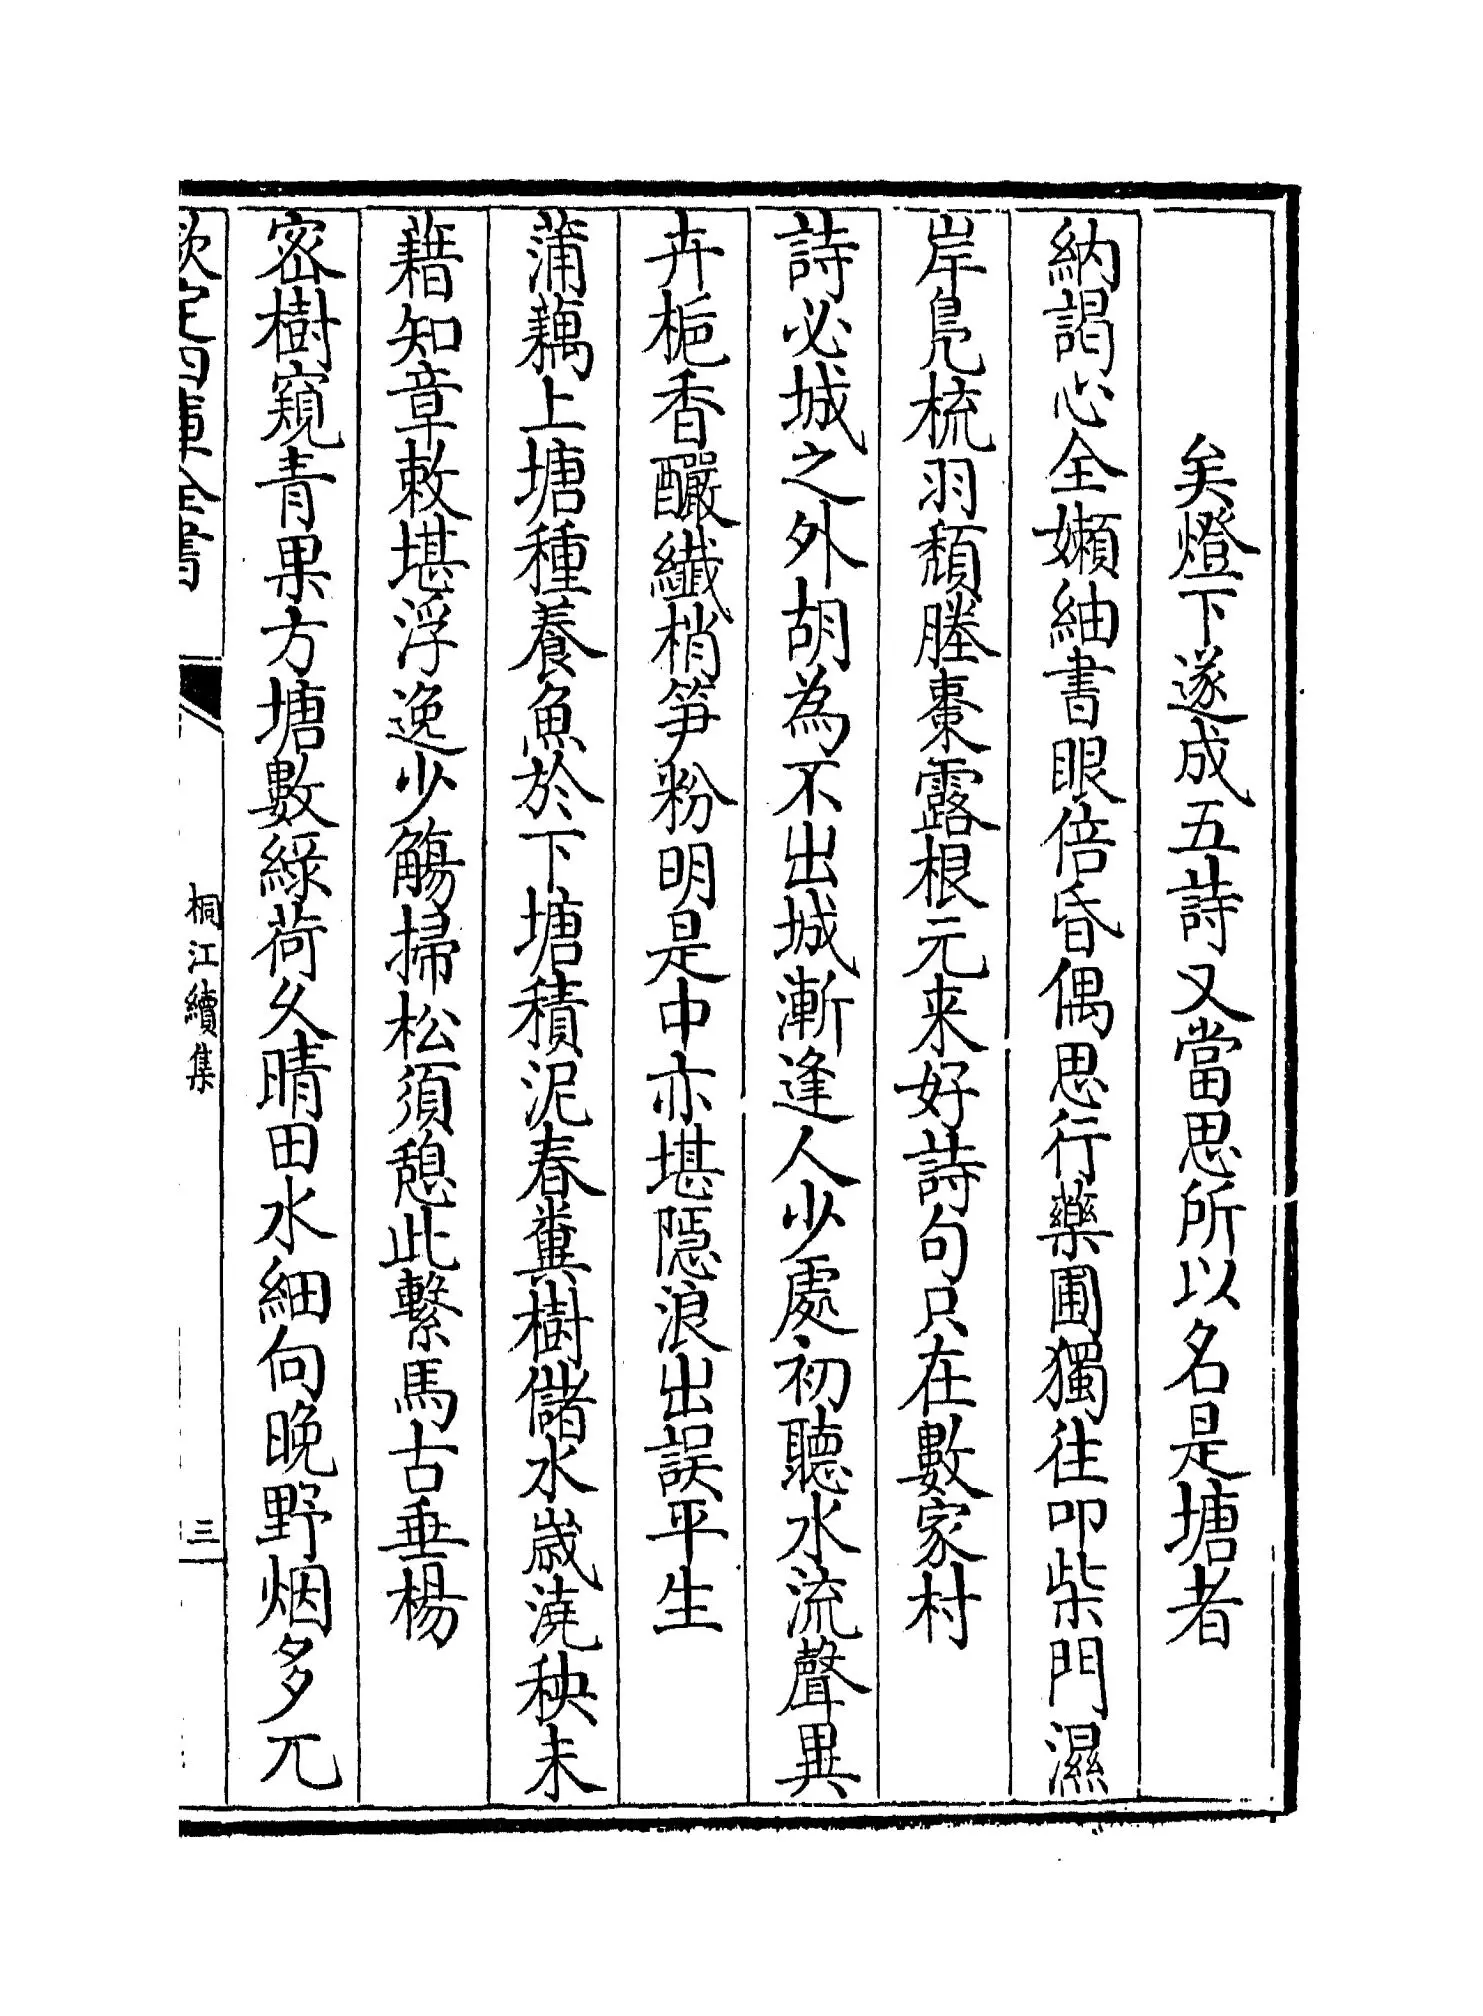 矣燈下遂成五詩又當思所以名是塘者
納謁心全嬾紬書眼倍昏偶思行藥圃獨往叩柴門濕
岸鳧梳羽頽塍棗露根元来好詩句只在數家村
詩必城之外胡為不出城漸逢人少處初聽水流聲異
卉栀香釅纎梢笋粉明是中亦堪隠浪出誤平生
蒲藕上塘種養魚於下塘積泥春糞樹儲水嵗澆秧未
藉知章敕堪浮逸少觴掃松須憩此繫馬古垂楊
密樹窺青果方塘數緑荷久晴田水細向晩野烟多兀
欽定四庫全書
桐江續集
三